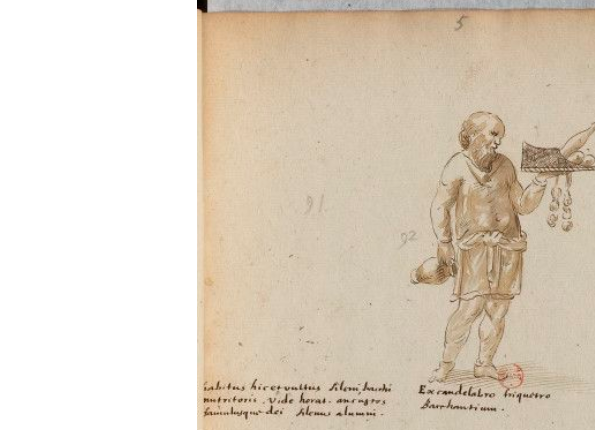 5
91
92
habitus hic et vultus Sileni, bacchi
nutritoris. Vide horat.
famulusque dei Silenus alumni.
Ex candelabro triquetro
Bacchantium.